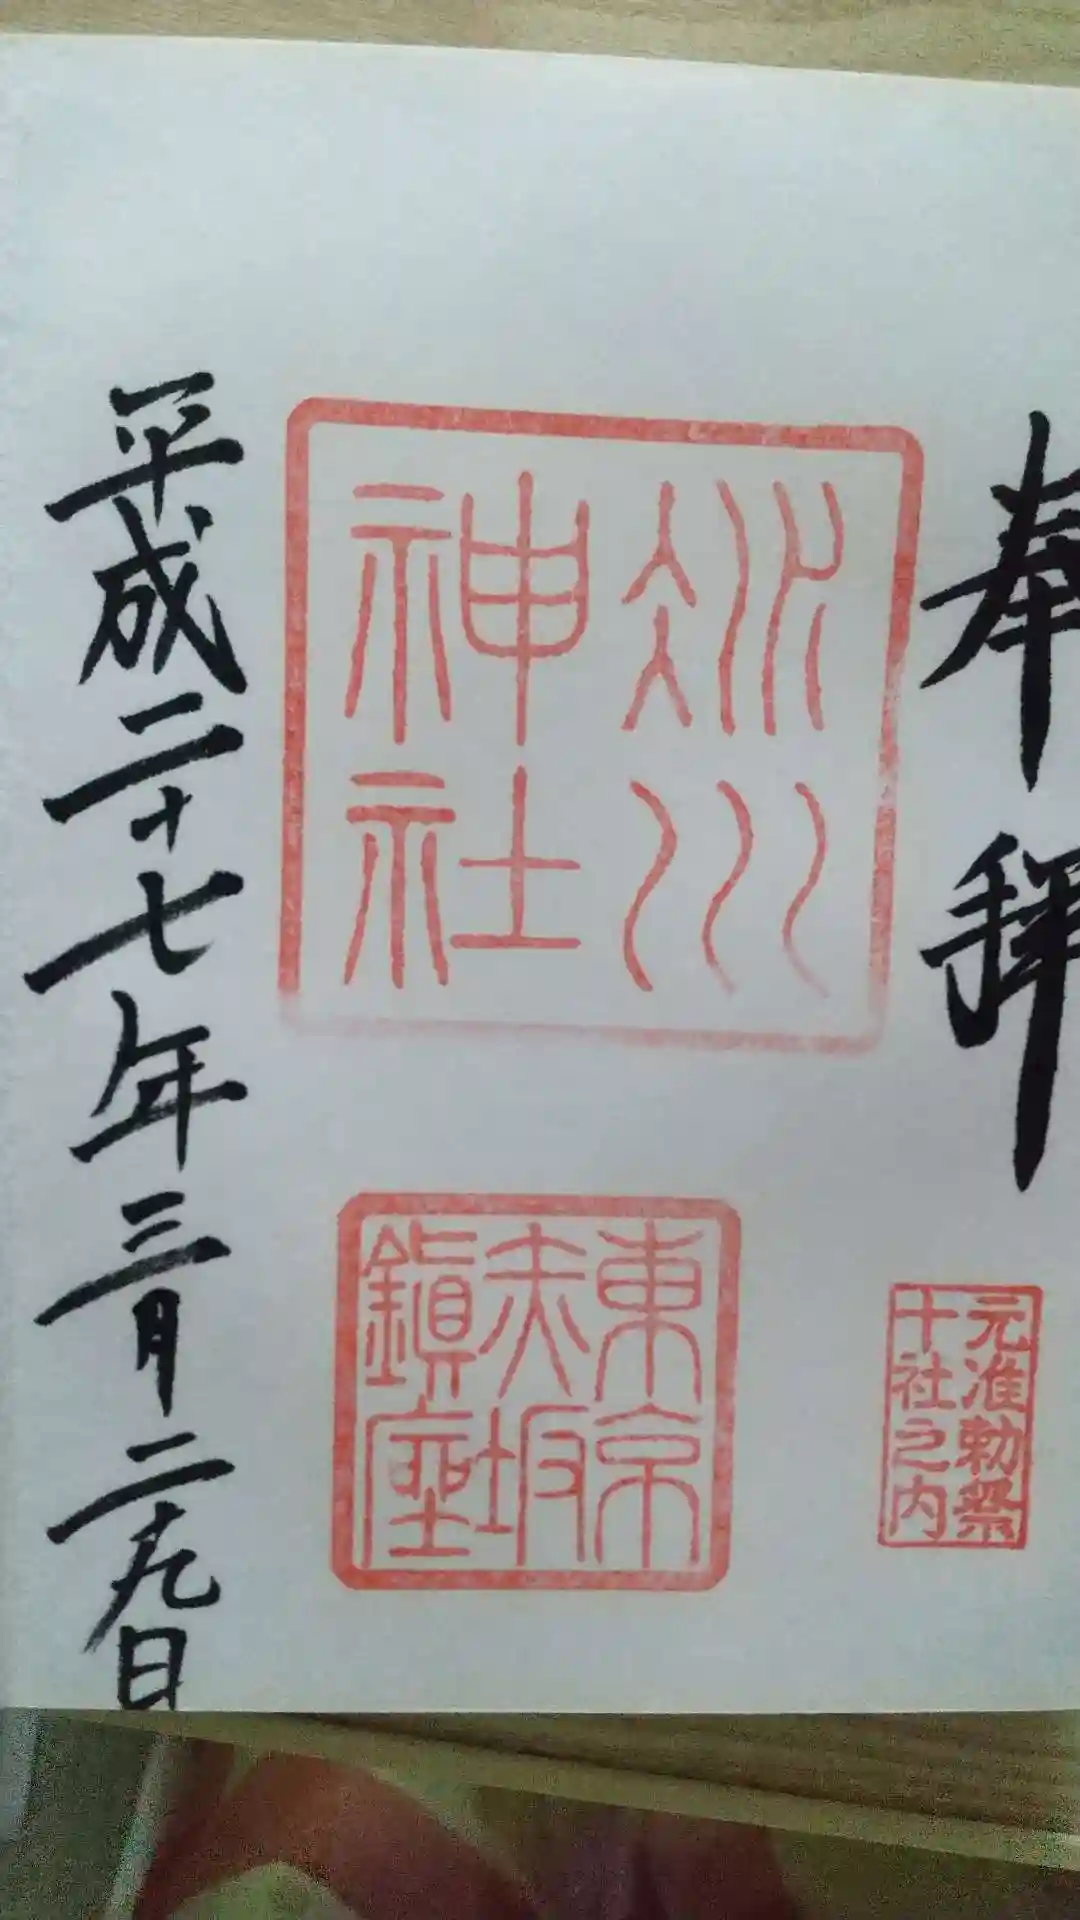 奉拝
元准勅祭
十社之内
冰川
神社
東京
赤坂
鎭座
平成二十七年三月二十九日